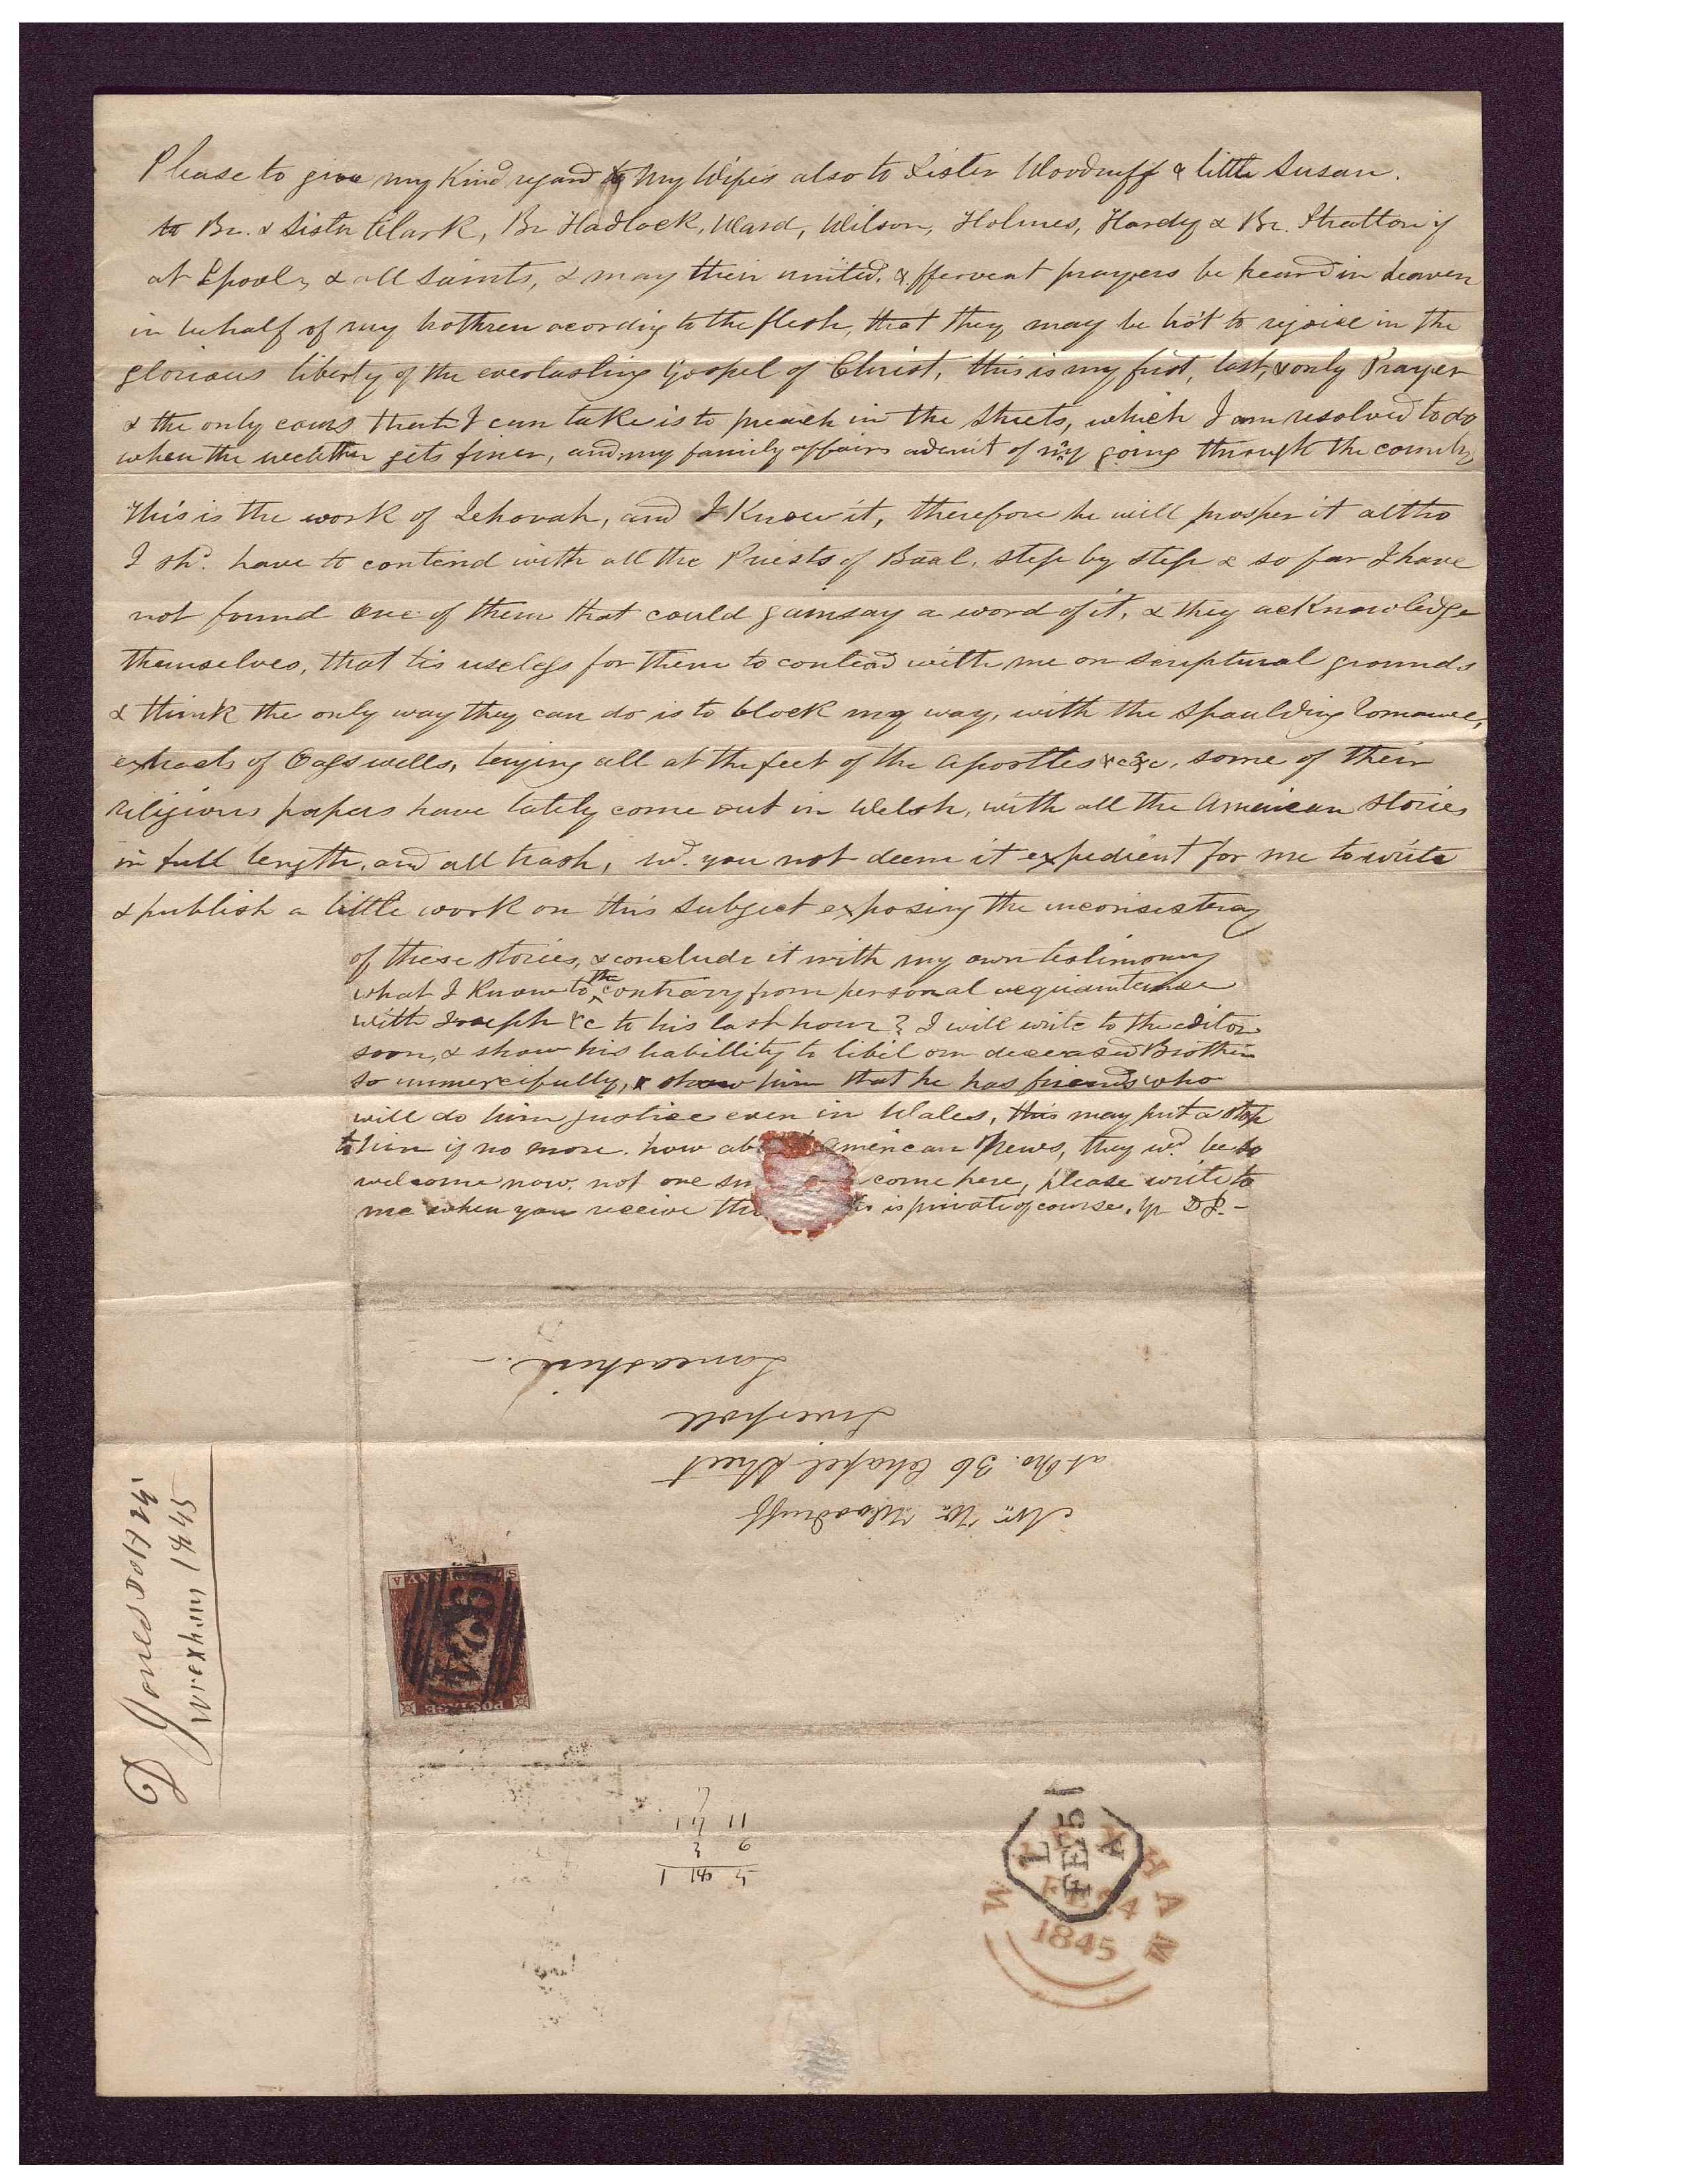 Please to give my Kind regard to My Wife's also to Sister Woodruff & little Susan.
to Br. & Sister Clark, Br Hadlock, Ward, Wilson, Holmes, Hardy & Br. Stratton if
at Lpool, & all Saints, & may their united, & ffervent prayers be heard in heaven
in behalf of my brothren acordig to the flesh, that they may be bro't to rejoice in the
glorious liberty of the everlasting Gospel of Christ, this is my first, last, & only Prayer
& the only cours that I can take is to preach in the Streets, which I am resolved to do
when the weather gets finer, and my family affairs admit of my going through the country
This is the work of Jehovah, and I Know it, therefore he will prosper it altho
I shd. have to contend with all the Priests of Baal, step by step & so far I have
not found One of them that could gainsay a word of it, & they acKnowledge
themselves, that tis useless for them to contend with me on scriptural grounds
& think the only way they can do is to block my way, with the Spaulding Romance,
extracts of Cagswells, laying all at the feet of the Apostles &c &c, some of their
religious papers have lately come out in Welsh, with all the American Stories
in full length, and all trash, wd. you not deem it expedient for me to write
& publish a little work on this Subject exposing the inconsistency
of these stories, & conclude it with my own testimony
what I Know to the contrary from personal acquaintance
with Joseph &c to his last hour? I will write to the editor
soon, & show his liabillity to libil our deceased Brother
so unmercifully, & show him that he has friends who
will do him justice even in Wales, this may put a stop
to him if no more. how ab American News, they wd. be so
welcome now. not one come here, please write to
me when you receive is private of course. yr D J. -
Lancashire. -
Liverpoll
at No. 36 Chapel Street
Mr. Wr. Woodruff
D Jones Dolt 24
Wrexham 1845
POSTAGE
S A
924
11 41
9 3
5 18 1
L
FE 5
A
WREXHAM
FE 4
1845